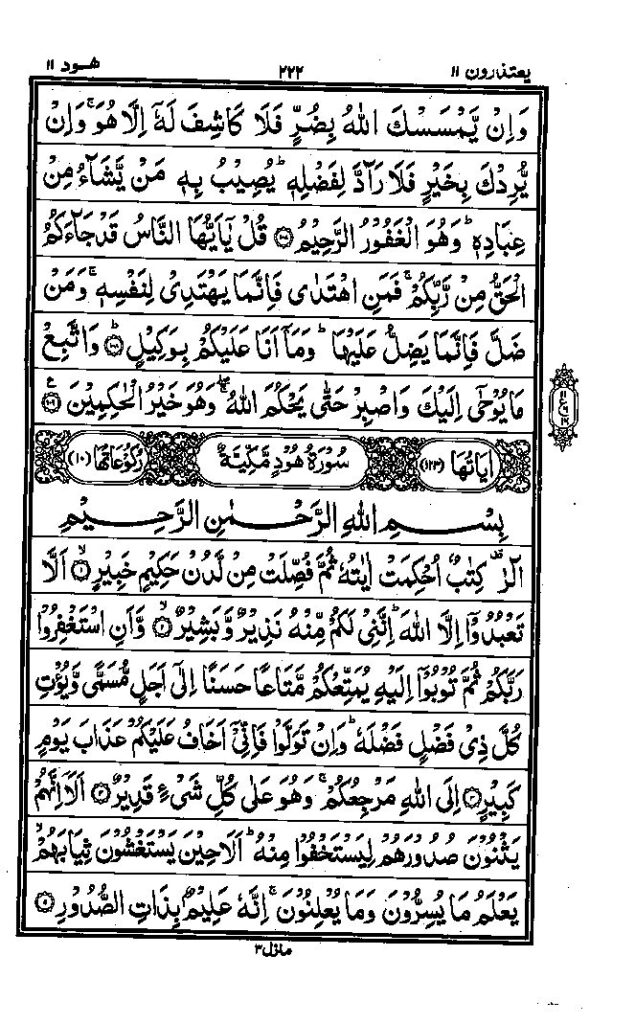 يعتذرون ۱۱ ۲۲۲ هود ۱۱
وَاِنْ يَّمْسَسْكَ اللّٰهُ بِضُرٍّ فَلَا كَاشِفَ لَهٗۤ اِلَّا هُوَ ۚ وَاِنْ
يُّرِدْكَ بِخَيْرٍ فَلَا رَآدَّ لِفَضْلِهٖ ؕ يُصِيْبُ بِهٖ مَنْ يَّشَآءُ مِنْ
عِبَادِهٖ ؕ وَهُوَ الْغَفُوْرُ الرَّحِيْمُ ۝۱۰۷ قُلْ يٰۤاَيُّهَا النَّاسُ قَدْ جَآءَكُمُ
الْحَقُّ مِنْ رَّبِّكُمْ ۚ فَمَنِ اهْتَدٰى فَاِنَّمَا يَهْتَدِيْ لِنَفْسِهٖ ۚ وَمَنْ
ضَلَّ فَاِنَّمَا يَضِلُّ عَلَيْهَا ؕ وَمَاۤ اَنَا عَلَيْكُمْ بِوَكِيْلٍ ؕ۝۱۰۸ وَاتَّبِعْ
مَا يُوْحٰۤى اِلَيْكَ وَاصْبِرْ حَتّٰى يَحْكُمَ اللّٰهُ ۖۚ وَهُوَ خَيْرُ الْحٰكِمِيْنَ ۝۱۰۹ ع
ع ۱۱ ۱۶
اٰيَاتُهَا (۱۲۳) سُوْرَةُ هُوْدٍ مَّكِّيَّةٌ رُكُوْعَاتُهَا (۱۰)
بِسْمِ اللّٰهِ الرَّحْمٰنِ الرَّحِيْمِ
الٓرٰ ۟ كِتٰبٌ اُحْكِمَتْ اٰيٰتُهٗ ثُمَّ فُصِّلَتْ مِنْ لَّدُنْ حَكِيْمٍ خَبِيْرٍ ۙ۝۱ اَلَّا
تَعْبُدُوْۤا اِلَّا اللّٰهَ ؕ اِنَّنِيْ لَكُمْ مِّنْهُ نَذِيْرٌ وَّبَشِيْرٌ ۙ۝۲ وَّاَنِ اسْتَغْفِرُوْا
رَبَّكُمْ ثُمَّ تُوْبُوْۤا اِلَيْهِ يُمَتِّعْكُمْ مَّتَاعًا حَسَنًا اِلٰۤى اَجَلٍ مُّسَمًّى وَّيُؤْتِ
كُلَّ ذِيْ فَضْلٍ فَضْلَهٗ ؕ وَاِنْ تَوَلَّوْا فَاِنِّيْۤ اَخَافُ عَلَيْكُمْ عَذَابَ يَوْمٍ
كَبِيْرٍ ۝۳ اِلَى اللّٰهِ مَرْجِعُكُمْ ۚ وَهُوَ عَلٰى كُلِّ شَيْءٍ قَدِيْرٌ ۝۴ اَلَاۤ اِنَّهُمْ
يَثْنُوْنَ صُدُوْرَهُمْ لِيَسْتَخْفُوْا مِنْهُ ؕ اَلَا حِيْنَ يَسْتَغْشُوْنَ ثِيَابَهُمْ ۙ
يَعْلَمُ مَا يُسِرُّوْنَ وَمَا يُعْلِنُوْنَ ۚ اِنَّهٗ عَلِيْمٌۢ بِذَاتِ الصُّدُوْرِ ۝۵
منزل ۳